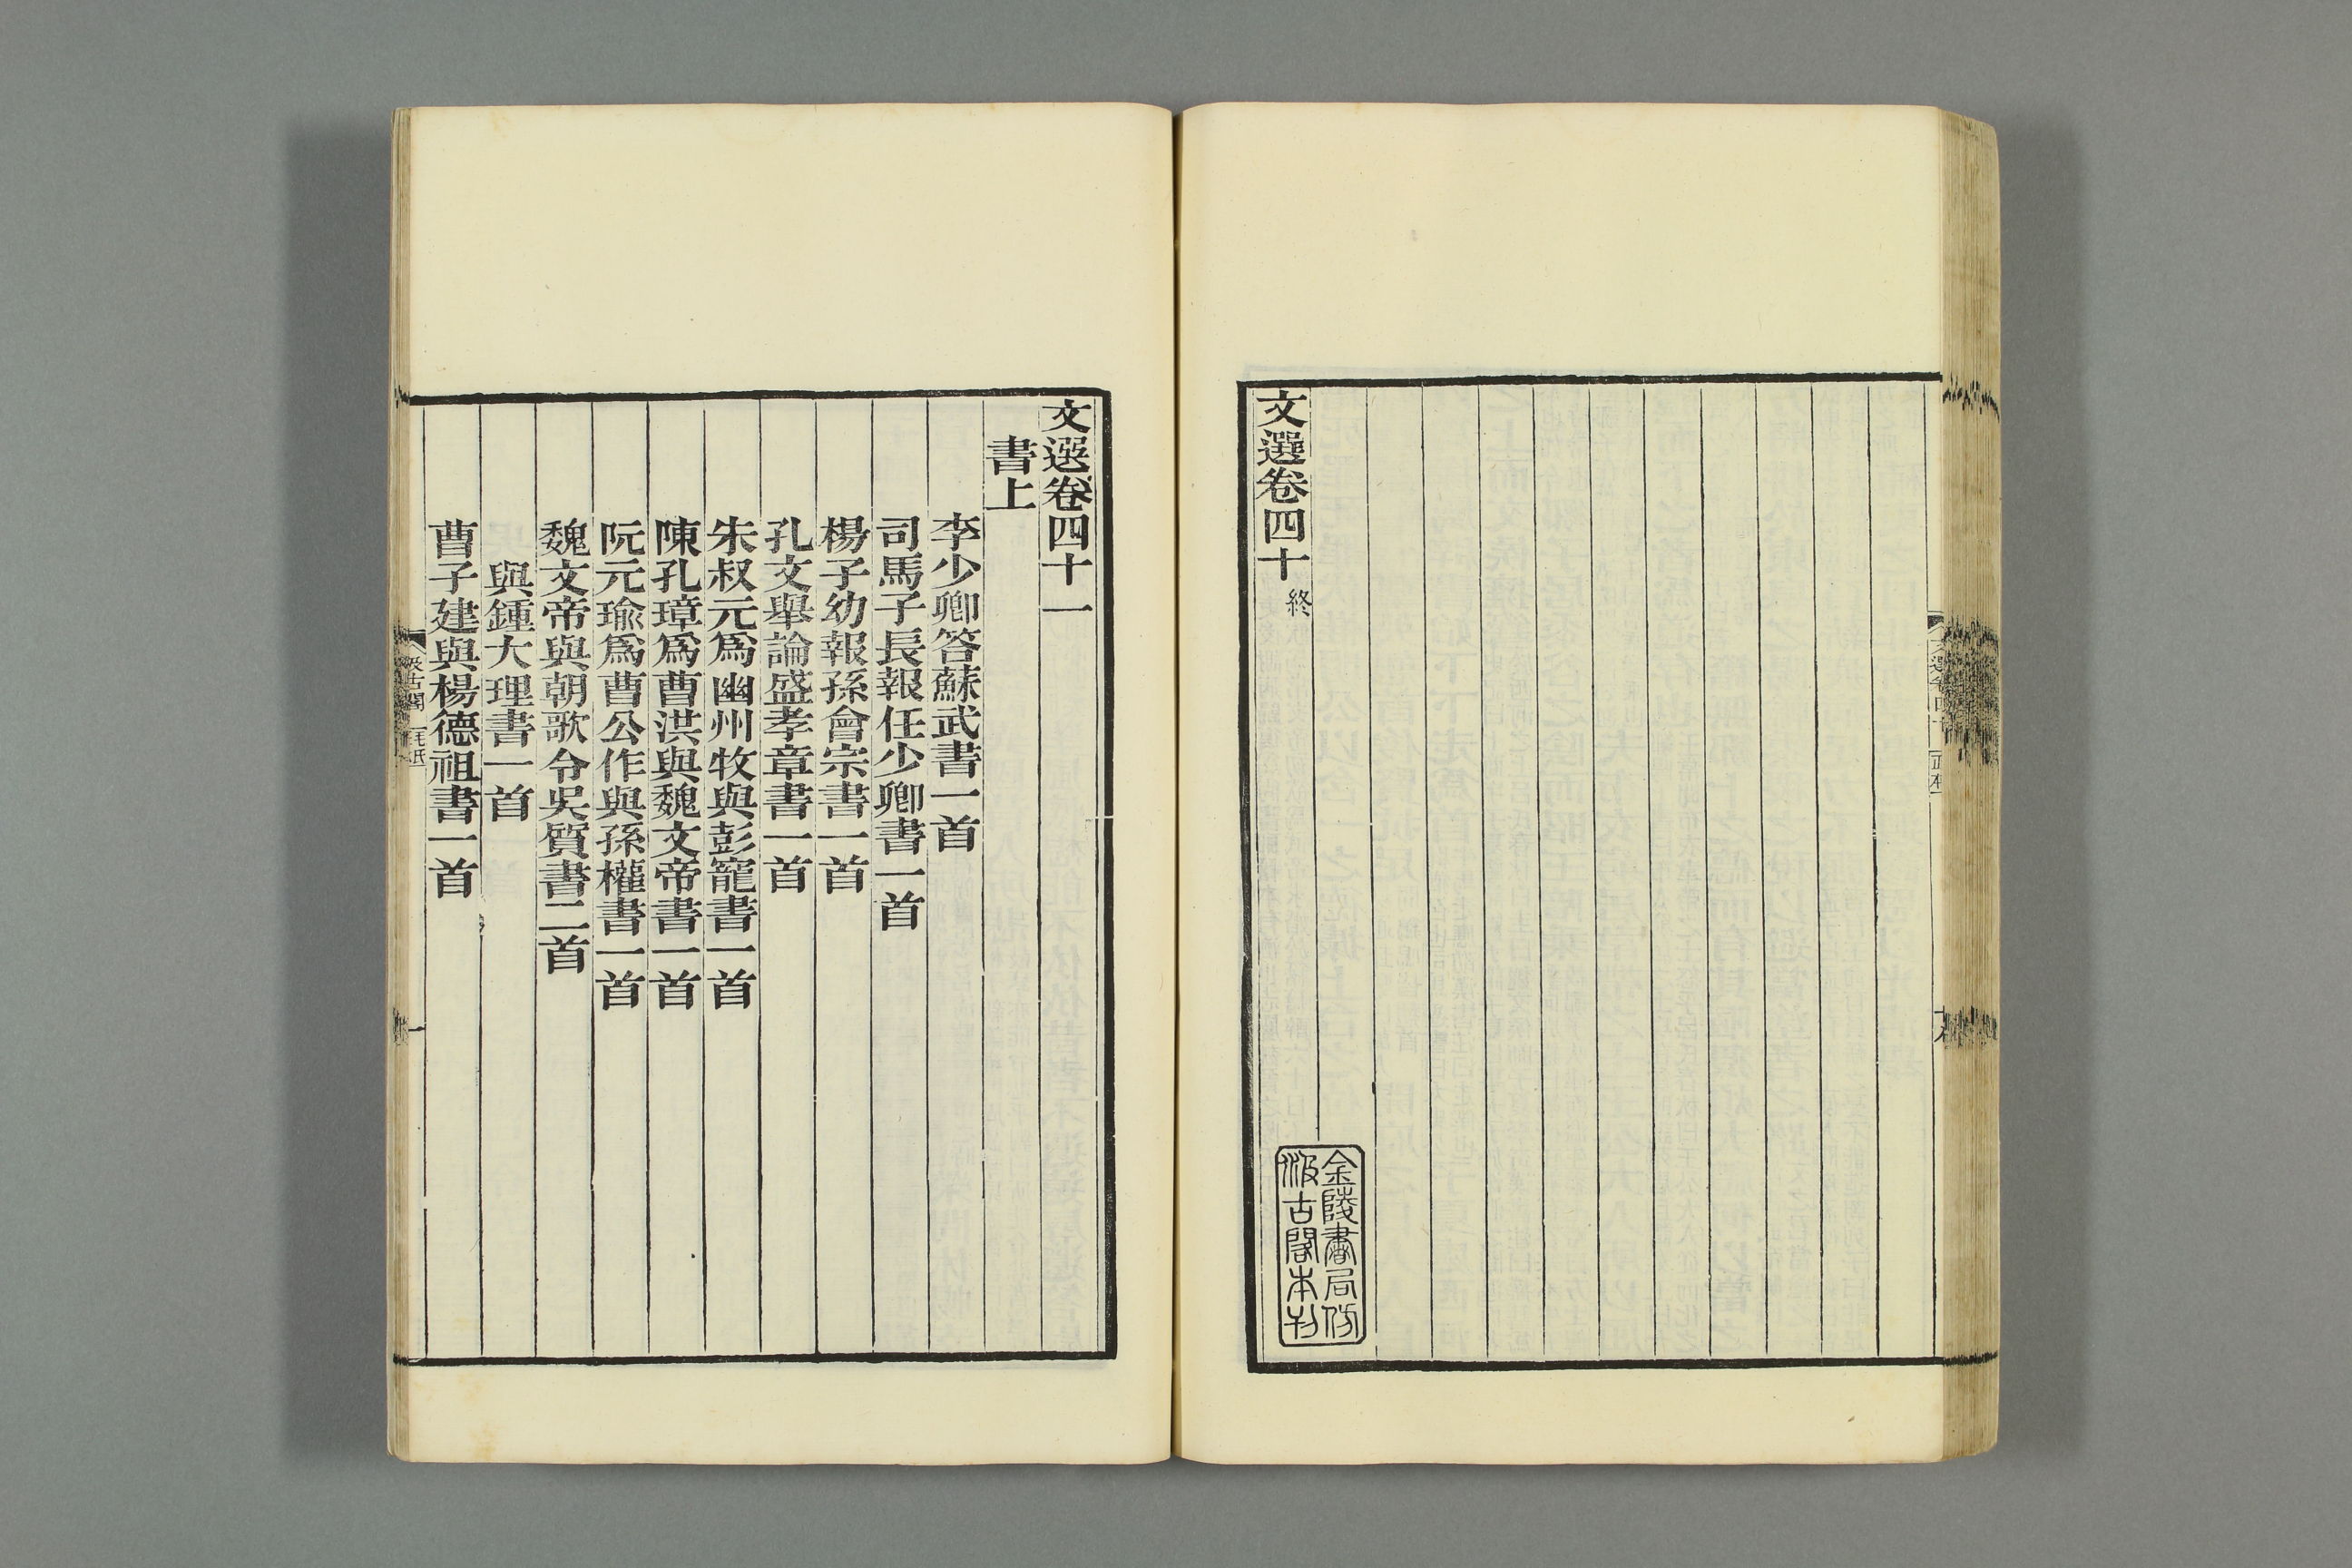 文選卷四十 終
金陵書局仿
汲古閣本刊
文選卷四十一
書上
李少卿答蘇武書一首
司馬子長報任少卿書一首
楊子幼報孫會宗書一首
孔文舉論盛孝章書一首
朱叔元爲幽州牧與彭寵書一首
陳孔璋爲曹洪與魏文帝書一首
阮元瑜爲曹公作與孫權書一首
魏文帝與朝歌令吳質書二首
與鍾大理書一首
曹子建與楊德祖書一首